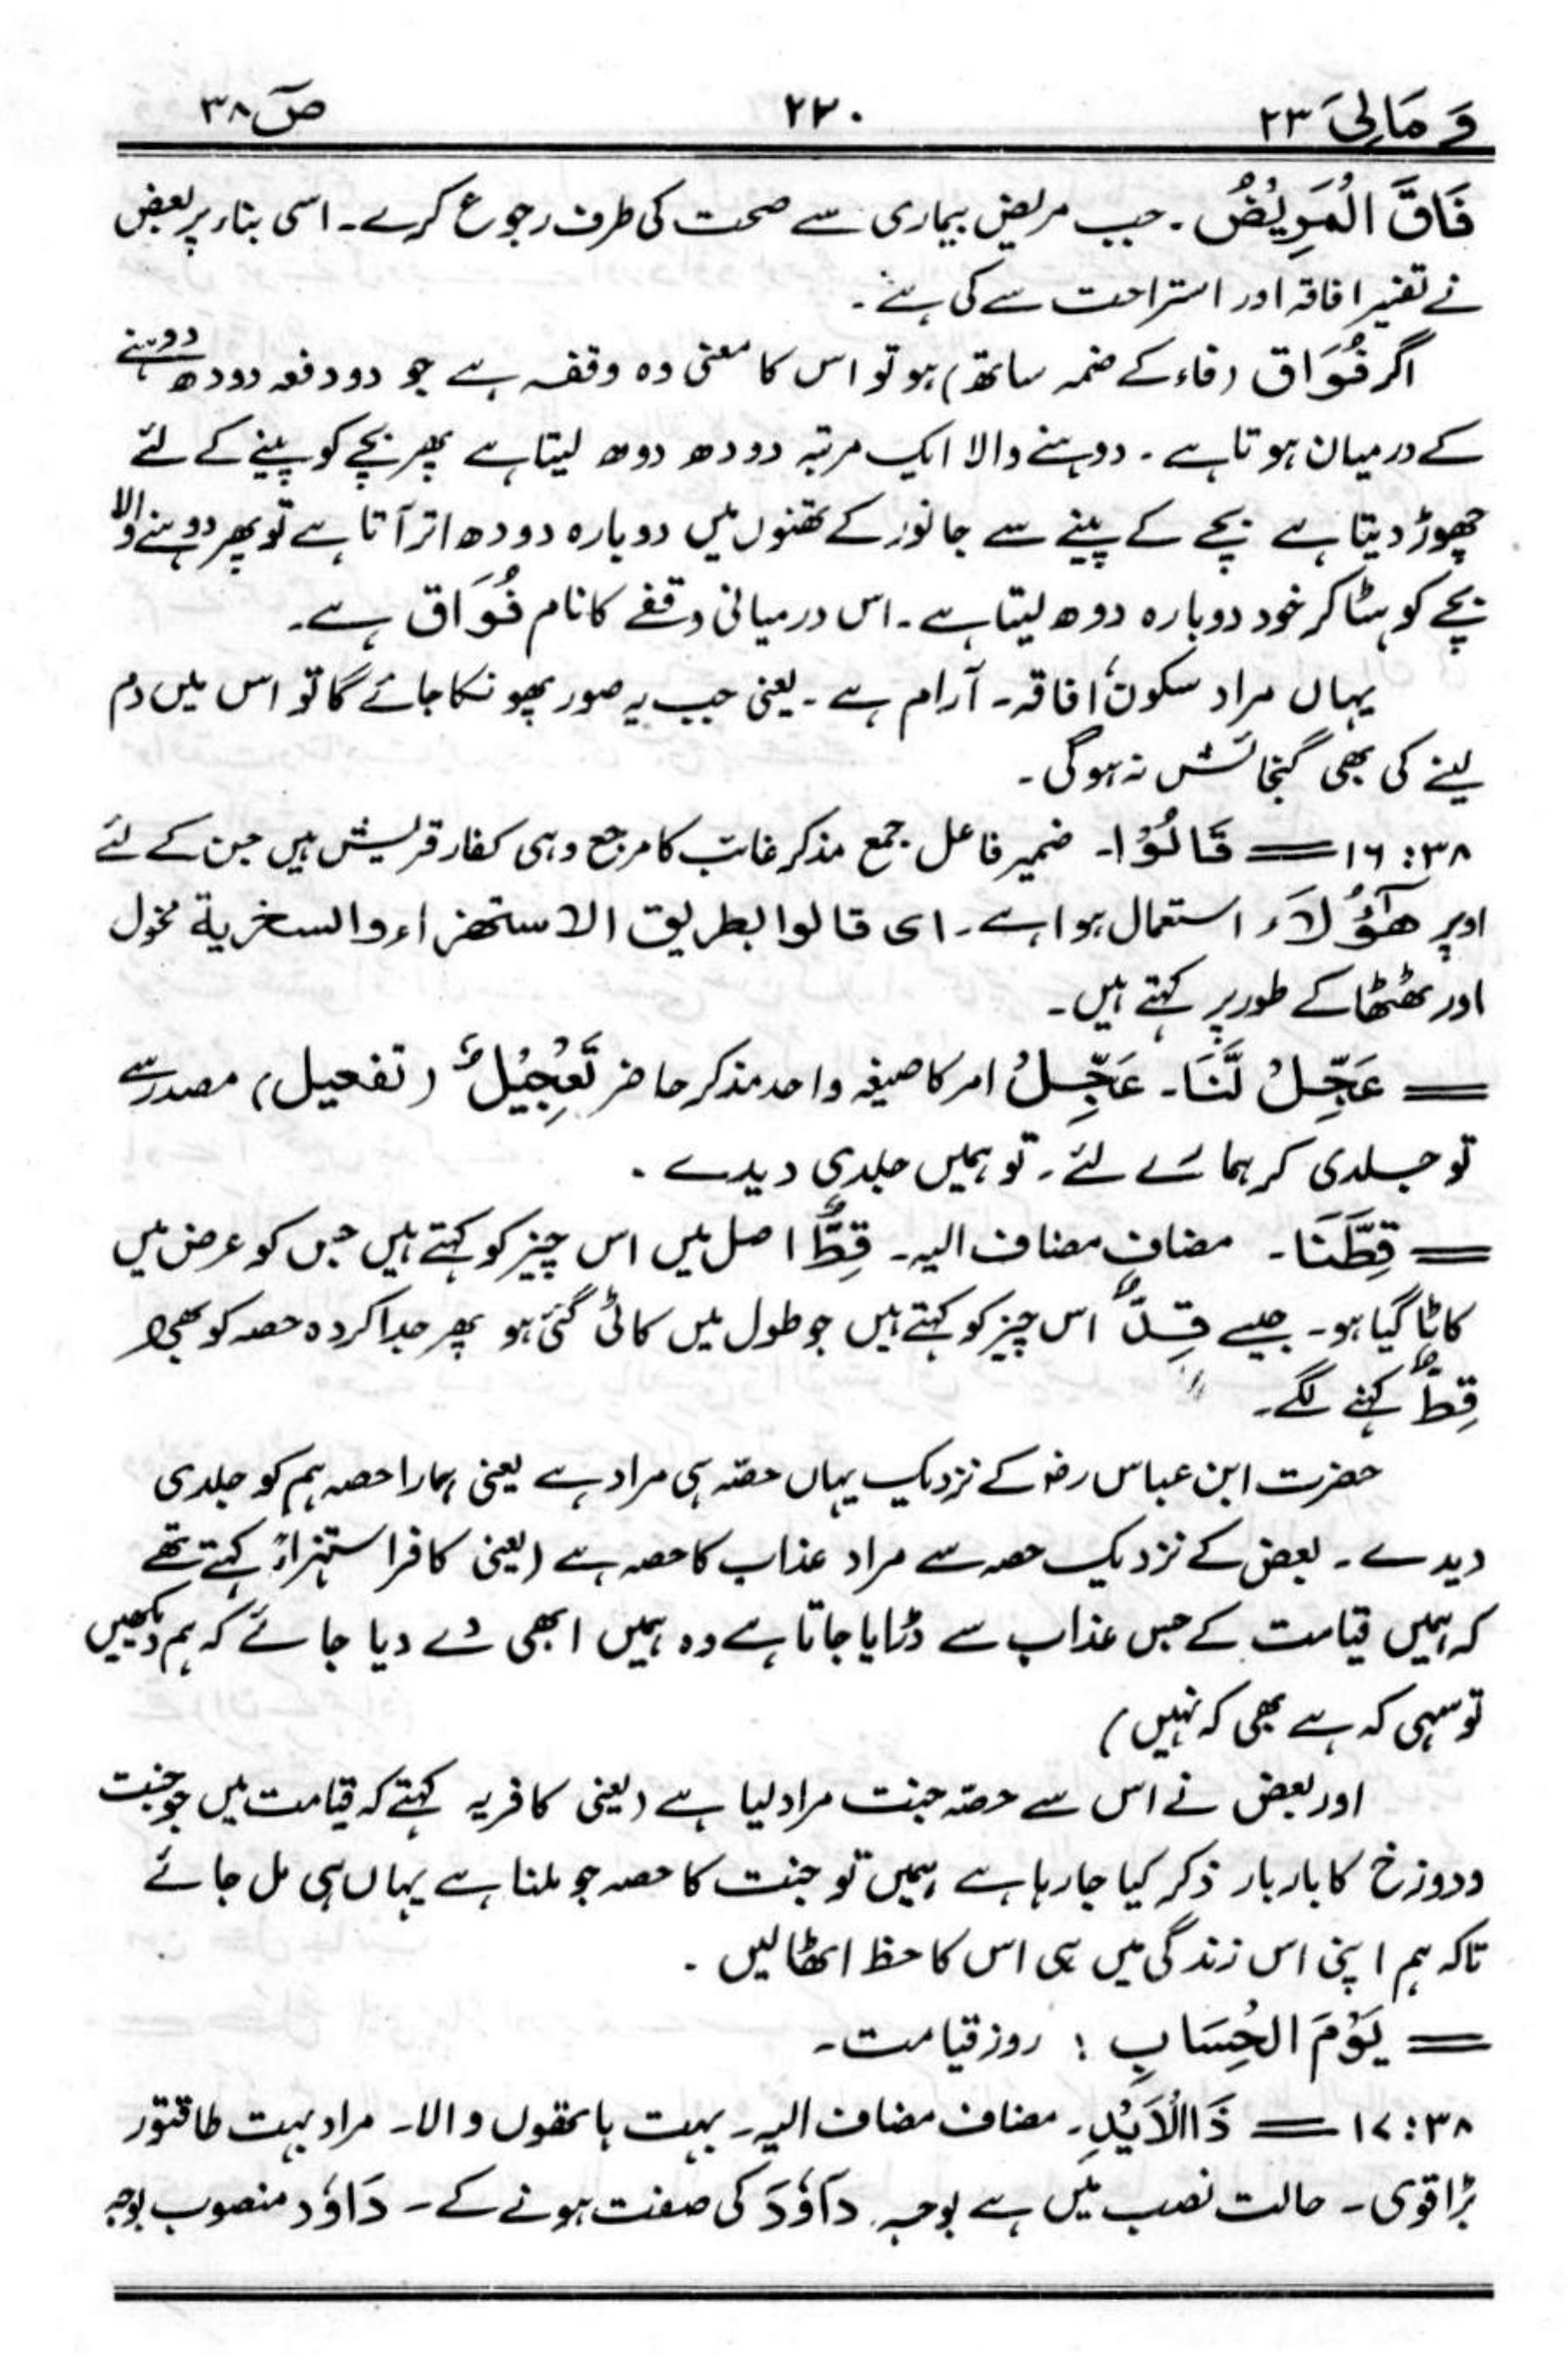 وَ مَالِیَ ٢٣ ٢٢٠ صٓ ٣٨
فَاقَ الْمَرِيْضُ ۔ جب مریض بیماری سے صحت کی طرف رجوع کرے۔ اسی بناء پر بعض
نے تفسیر افاقہ اور استراحت سے کی ہے ۔
اگر فُوَاق (فاء کے ضمہ ساتھ) ہو تو اس کا معنی وہ وقفہ ہے جو دو دفعہ دودھ دوہنے
کے درمیان ہوتا ہے ۔ دوہنے والا ایک مرتبہ دودھ دوھ لیتا ہے پھر بچے کو پینے کے لئے
چھوڑ دیتا ہے بچے کے پینے سے جانور کے تھنوں میں دوبارہ دودھ اتر آتا ہے تو پھر دوہنے والا
بچے کو ہٹا کر خود دوبارہ دوھ لیتا ہے ۔ اس درمیانی وقفے کا نام فُوَاق ہے۔
یہاں مراد سکون، افاقہ۔ آرام ہے ۔ یعنی جب یہ صور پھونکا جائے گا تو اس میں دم
لینے کی بھی گنجائش نہ ہوگی ۔
٣٨: ١٦ = قَالُوْا۔ ضمیر فاعل جمع مذکر غائب کا مرجع وہی کفار قریش ہیں جن کے لئے
اوپر هٰٓؤُلَاۤءِ استعمال ہوا ہے ۔ ای قالوا بطریق الاستھزاء والسخریة مخول
اور ٹھٹھا کے طور پر کہتے ہیں ۔
= عَجِّلْ لَّنَا۔ عَجِّلْ امر کا صیغہ واحد مذکر حاضر تَعْجِيْلٌ (تفعیل) مصدر سے
تو جلدی کر ہمارے لئے ۔ تو ہمیں جلدی دیدے ۔
= قِطَّنَا۔ مضاف مضاف الیہ۔ قِطٌّ اصل میں اس چیز کو کہتے ہیں جس کو عرض میں
کاٹا گیا ہو۔ جیسے قِدٌّ اس چیز کو کہتے ہیں جو طول میں کاٹی گئی ہو پھر جدا کردہ حصہ کو بھی
قِطٌّ کہنے لگے۔
حضرت ابن عباس رض کے نزدیک یہاں حصّہ ہی مراد ہے یعنی ہمارا حصہ ہم کو جلدی
دیدے ۔ بعض کے نزدیک حصہ سے مراد عذاب کا حصہ ہے (یعنی کافر استہزاءً کہتے تھے
کہ ہمیں قیامت کے جس عذاب سے ڈرایا جاتا ہے وہ ہمیں ابھی دے دیا جائے کہ ہم دیکھیں
تو سہی کہ ہے بھی کہ نہیں)
اور بعض نے اس سے حصّہ جنت مراد لیا ہے (یعنی کافر یہ کہتے کہ قیامت میں جو جنت
ودوزخ کا بار بار ذکر کیا جا رہا ہے ہمیں تو جنت کا حصہ جو ملنا ہے یہاں ہی مل جائے
تاکہ ہم اپنی اس زندگی میں ہی اس کا حظ اٹھا لیں ۔
= يَوْمَ الْحِسَابِ : روز قیامت۔
٣٨: ١٧ = ذَا الْاَيْدِ۔ مضاف مضاف الیہ۔ بہت ہاتھوں والا۔ مراد بہت طاقتور
بڑا قوی ۔ حالت نصب میں ہے بوجہ دَاوٗدَ کی صفت ہونے کے ۔ دَاوٗدَ منصوب بوجہ